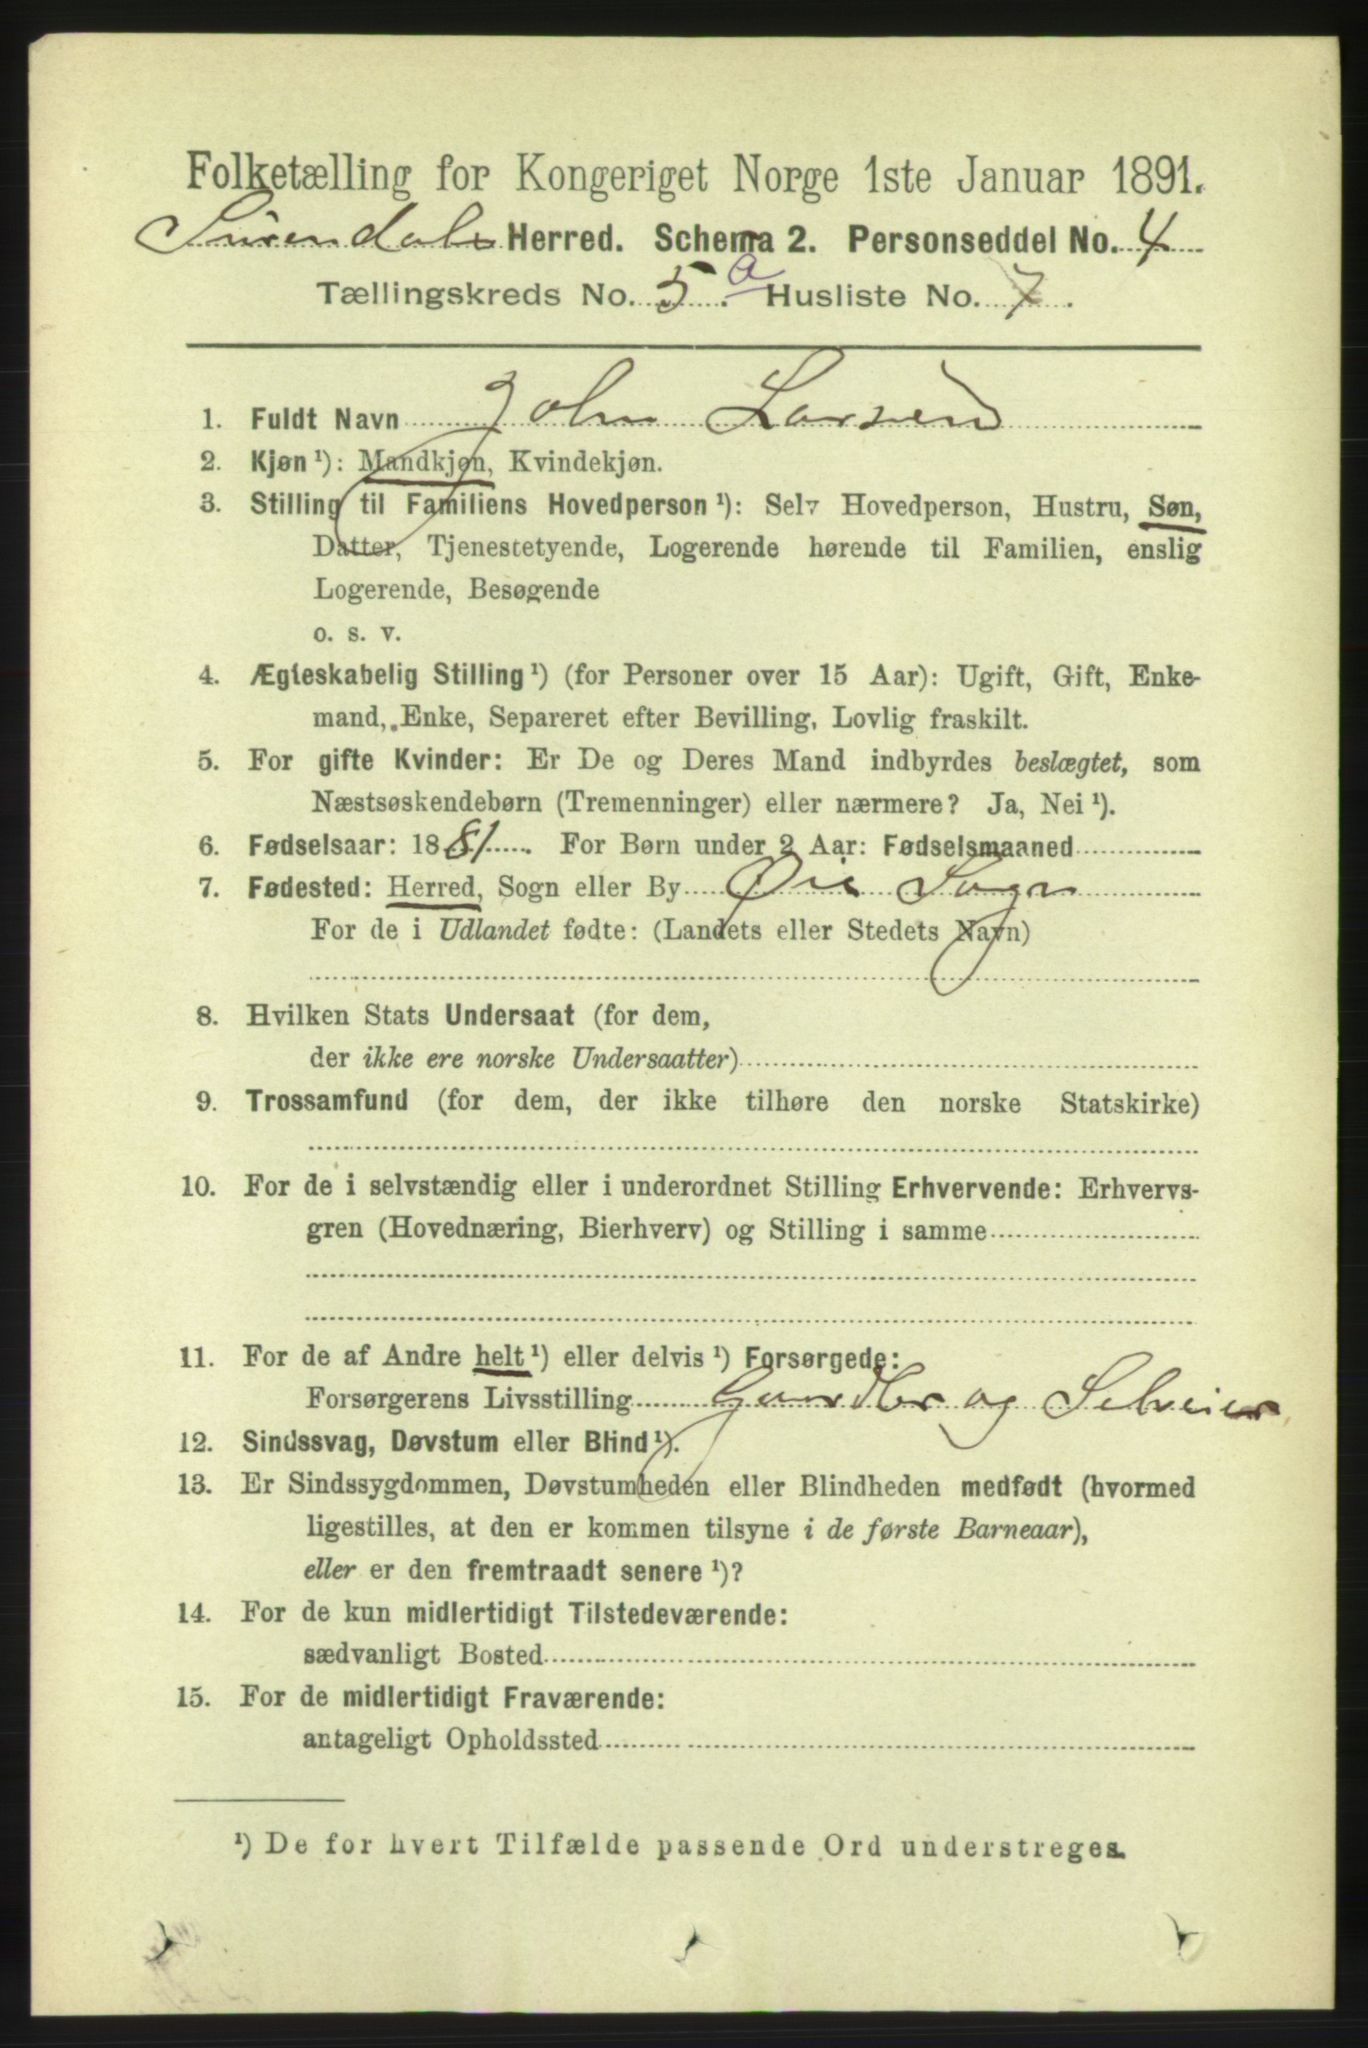 Folketælling for Kongeriget Norge 1ste Januar 1891.
Surendals Herred. Schema 2. Personseddel No. 4
Tællingskreds No. 5.a Husliste No. 7.
1. Fuldt Navn John Larsen
2. Kjøn ¹): Mandkjøn, Kvindekjøn.
3. Stilling til Familiens Hovedperson ¹): Selv Hovedperson, Hustru, Søn,
Datter, Tjenestetyende, Logerende hørende til Familien, enslig
Logerende, Besøgende
o. s. v.
4. Ægteskabelig Stilling ¹) (for Personer over 15 Aar): Ugift, Gift, Enke-
mand, Enke, Separeret efter Bevilling, Lovlig fraskilt.
5. For gifte Kvinder: Er De og Deres Mand indbyrdes beslægtet, som
Næstsøskendebørn (Tremenninger) eller nærmere? Ja, Nei ¹).
6. Fødselsaar: 1881. For Børn under 2 Aar: Fødselsmaaned
7. Fødested: Herred, Sogn eller By Øie Sogn
For de i Udlandet fødte: (Landets eller Stedets Navn)
8. Hvilken Stats Undersaat (for dem,
der ikke ere norske Undersaatter)
9. Trossamfund (for dem, der ikke tilhøre den norske Statskirke)
10. For de i selvstændig eller i underordnet Stilling Erhvervende: Erhvervs-
gren (Hovednæring, Bierhverv) og Stilling i samme
11. For de af Andre helt ¹) eller delvis ¹) Forsørgede:
Forsørgerens Livsstilling Gaardbr og Selveier
12. Sindssvag, Døvstum eller Blind ¹).
13. Er Sindssygdommen, Døvstumheden eller Blindheden medfødt (hvormed
ligestilles, at den er kommen tilsyne i de første Barneaar),
eller er den fremtraadt senere ¹)?
14. For de kun midlertidigt Tilstedeværende:
sædvanligt Bosted
15. For de midlertidigt Fraværende:
antageligt Opholdssted
¹) De for hvert Tilfælde passende Ord understreges.